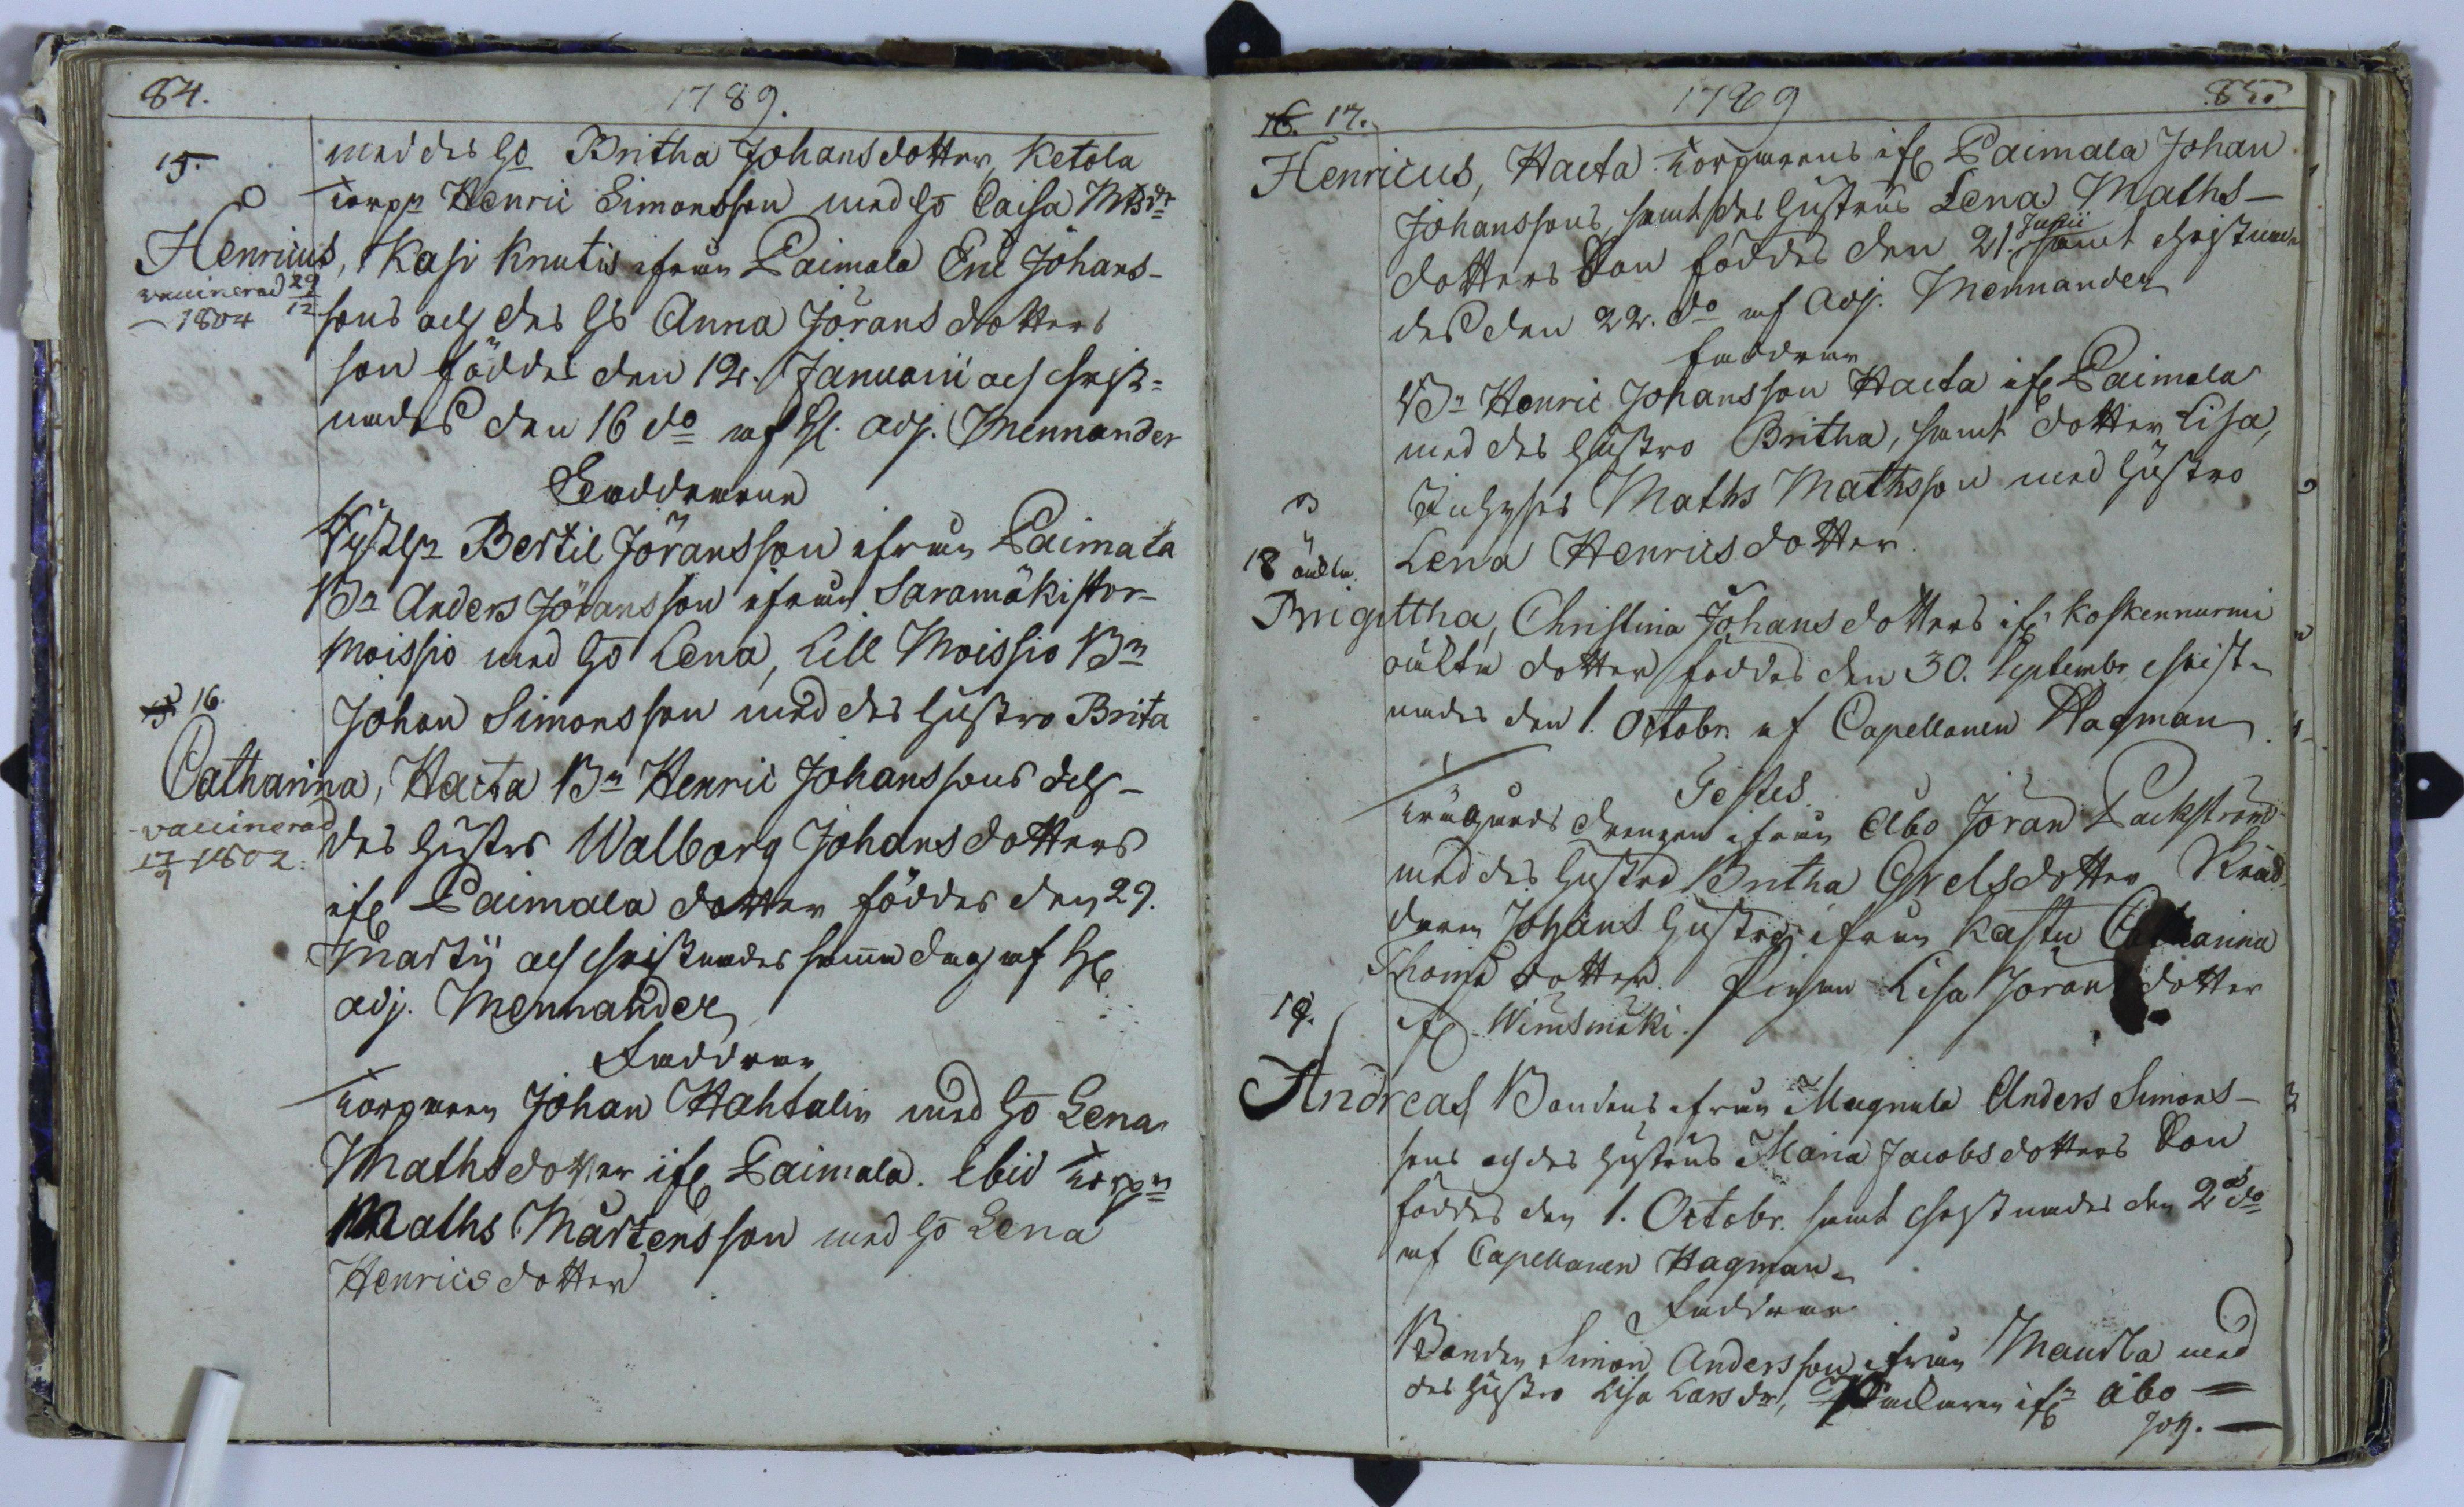 84.
1789.
med des Ho Britha Johansdotter, Ketola
torp:n Henric Simonsson med Ho Caisa
15.
Henricus, Kasi Knutis ifrån Paimala Eric Johans-
vaccinerad 29/12
1804
sons och des Hs Anna Jörans dotters
son föddes den 12. Januarii och christ-
nades den 16 do af H. adj. Mennander
Faddrarne
Bertil Jöransson ifrån Paimala
B:n Anders Jöransson ifrån Saramäki stor-
Moissio med Ho Lena, Lill Moissio B:n
16.
Johan Simonsson med des hustro Brita
Catharina, Haeta B:n Henric Johanssons och
vaccinerad
17/9 1802.
des hustrs Walborg Johansdotters
ifr Paimala dotter föddes den 29.
Martii och christnades samma dag af H:
adj. Mennander
Faddrar
torparen Johan Hahtalin med Ho Lena
Mathsdotter ifr Paimala. Ibid torp:n
Maths Mårtensson med Ho Lena
Henricsdotter
1789
85.
16. 17.
Henricus, Haeta torparens ifr Paimala Johan
Johanssons samt des hustrus Lena Maths-
dotters Son föddes den 21. Junii samt christna-
des den 22. do af Adj. Mennander
faddrar
B:n Henric Johansson Haeta ifr Paimala
med des hustro Britha, samt dotter Lisa,
Inhyses Maths Mathsson med hustro
Lena Henricsdotter.
18 oäkta.
Brigittha, Christina Johansdotters ifr Koskennurmi
oäkta dotter föddes den 30. Septembr. christ-
nades den 1. Octobr. af Capellanen Hagman.
Testes.
drengen ifrån Åbo Jöran Packström
med des hustro Britha Grelsdotter
Johans hustro ifrån Kastu Catharina
Thoma dotter. Pigan Lisa Jörans dotter
ifr
19.
Andreas Bondens ifrån Magnula Anders Simons-
sons och des hustrus Maria Jacobsdotters Son
föddes den 1. Octobr. samt christnades den 2 do
af Capellanen Hagman.
Faddrar
Bonden Simon Andersson ifrån Maurla med
des hustro Lisa Larsdr, ifr Åbo
Joh.